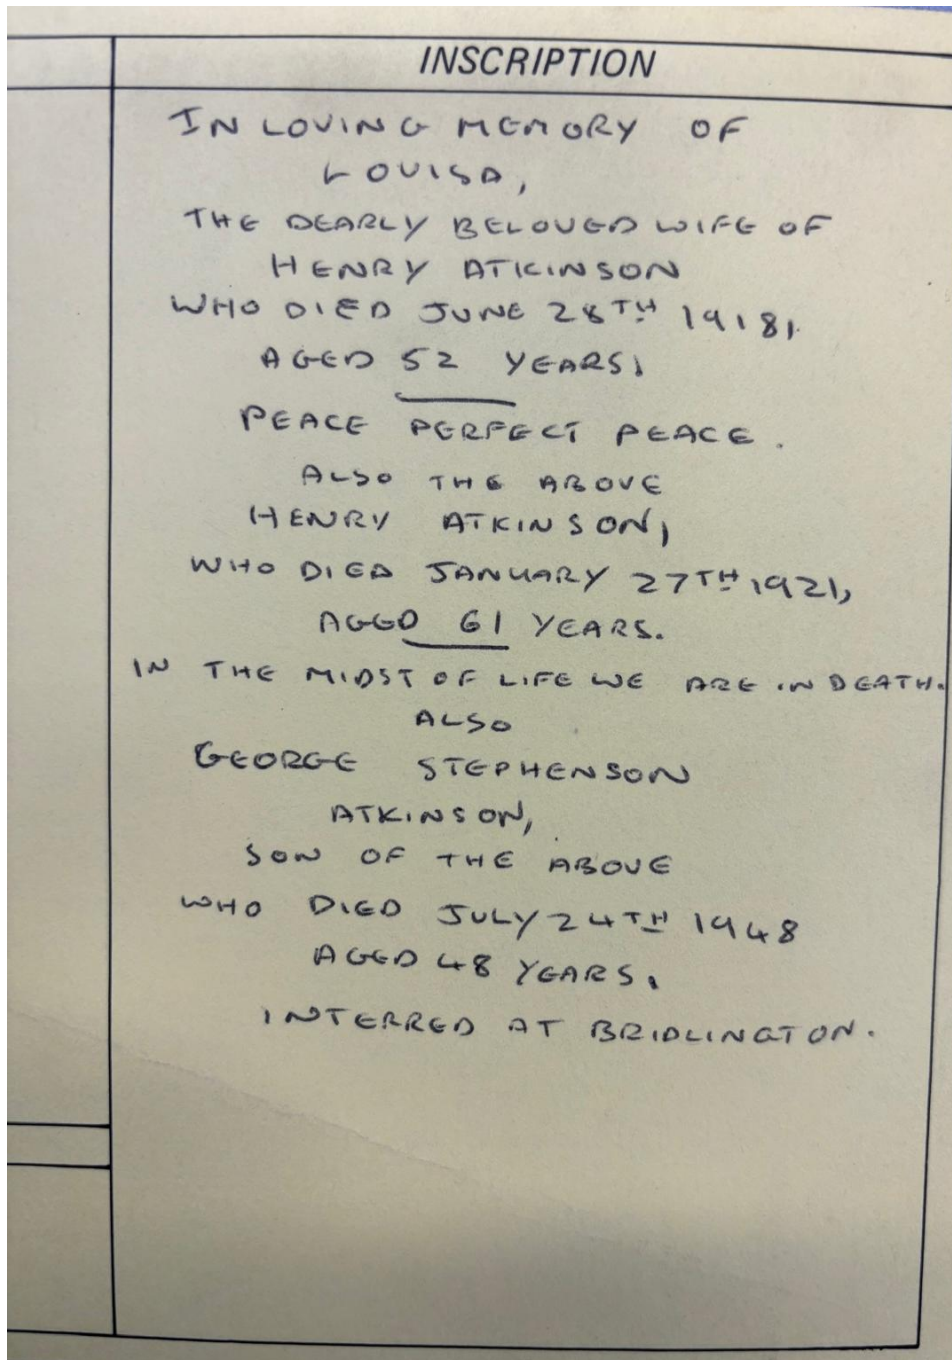 INSCRIPTION
IN LOVING MEMORY OF
LOUISA,
THE DEARLY BELOVED WIFE OF
HENRY ATKINSON
WHO DIED JUNE 28TH 1918,
AGED 52 YEARS,
PEACE PERFECT PEACE.
ALSO THE ABOVE
HENRY ATKINSON,
WHO DIED JANUARY 27TH 1921,
AGED 61 YEARS.
IN THE MIDST OF LIFE WE ARE IN DEATH.
ALSO
GEORGE STEPHENSON
ATKINSON,
SON OF THE ABOVE
WHO DIED JULY 24TH 1948
AGED 48 YEARS.
INTERRED AT BRIDLINGTON.